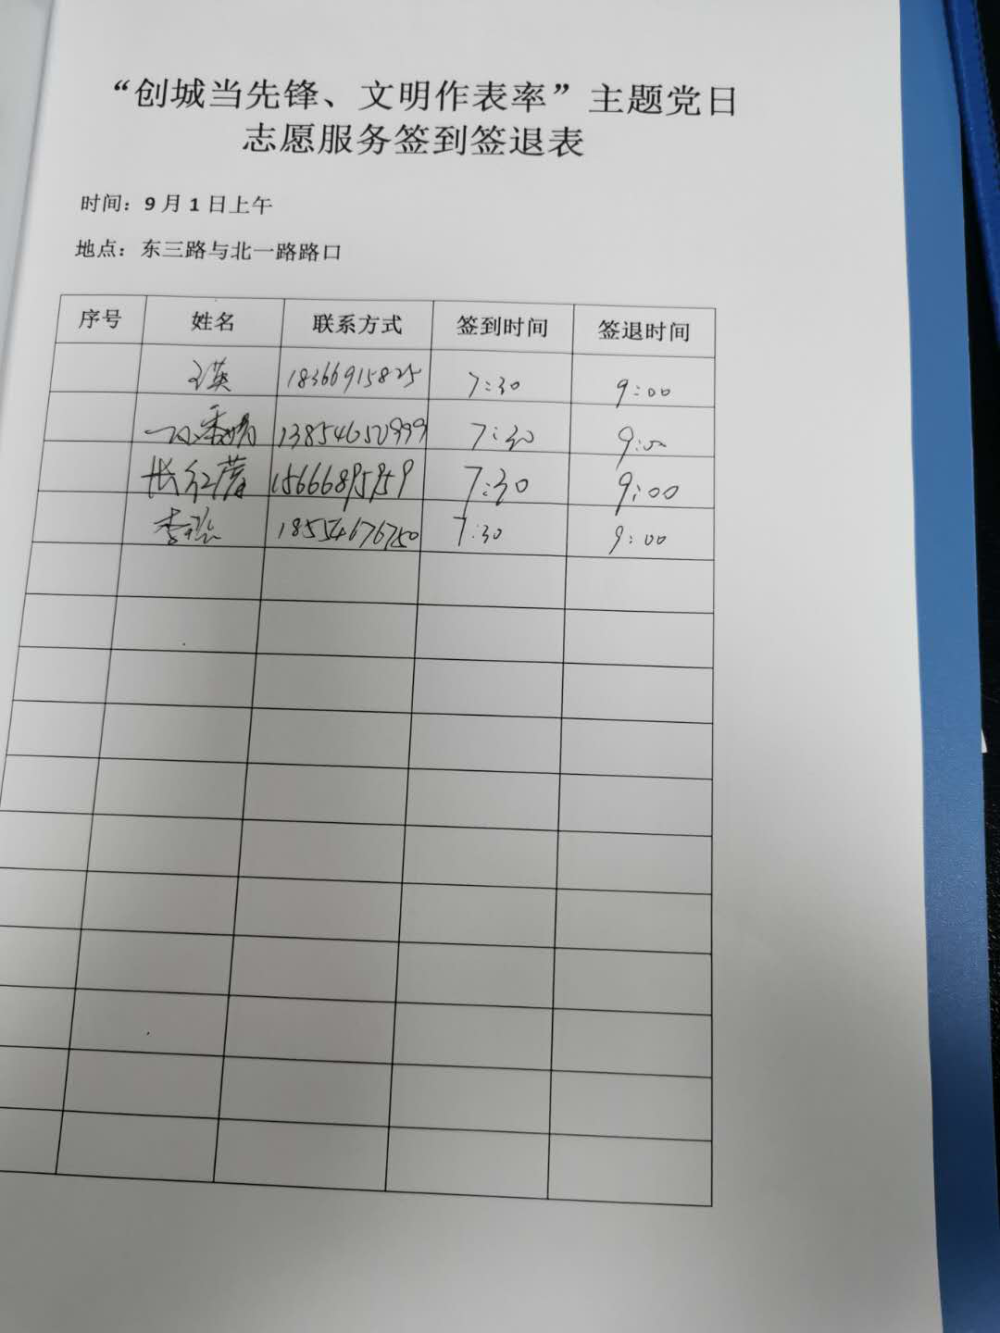 “创城当先锋、文明作表率”主题党日
志愿服务签到签退表
时间：9月1日上午
地点：东三路与北一路路口
序号 姓名 联系方式 签到时间 签退时间
王英 18366915825 7:30 9:00
13854650999 7:30 9:00
张红蕾 15666895959 7:30 9:00
李 18554676750 7:30 9:00